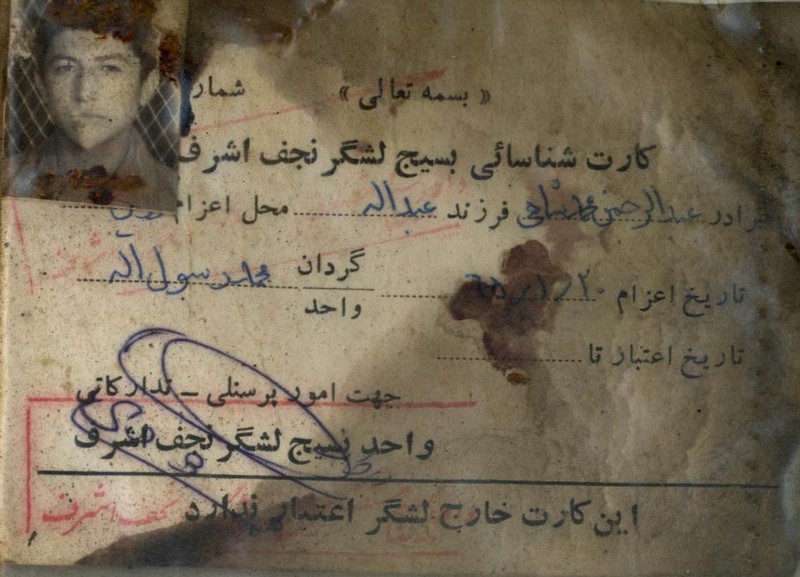 « بسمه تعالی » شمار
کارت شناسائی بسیج لشگر نجف اشرف
برادر عبدالرحمن فرزند عبداله محل اعزام
تاریخ اعزام ۶۵/۱/۲۰ گردان محمد رسول اله
واحد
تاریخ اعتبار تا
جهت امور پرسنلی – تدارکاتی
واحد بسیج لشگر نجف اشرف
این کارت خارج لشگر اعتبار ندارد
نجف اشرف